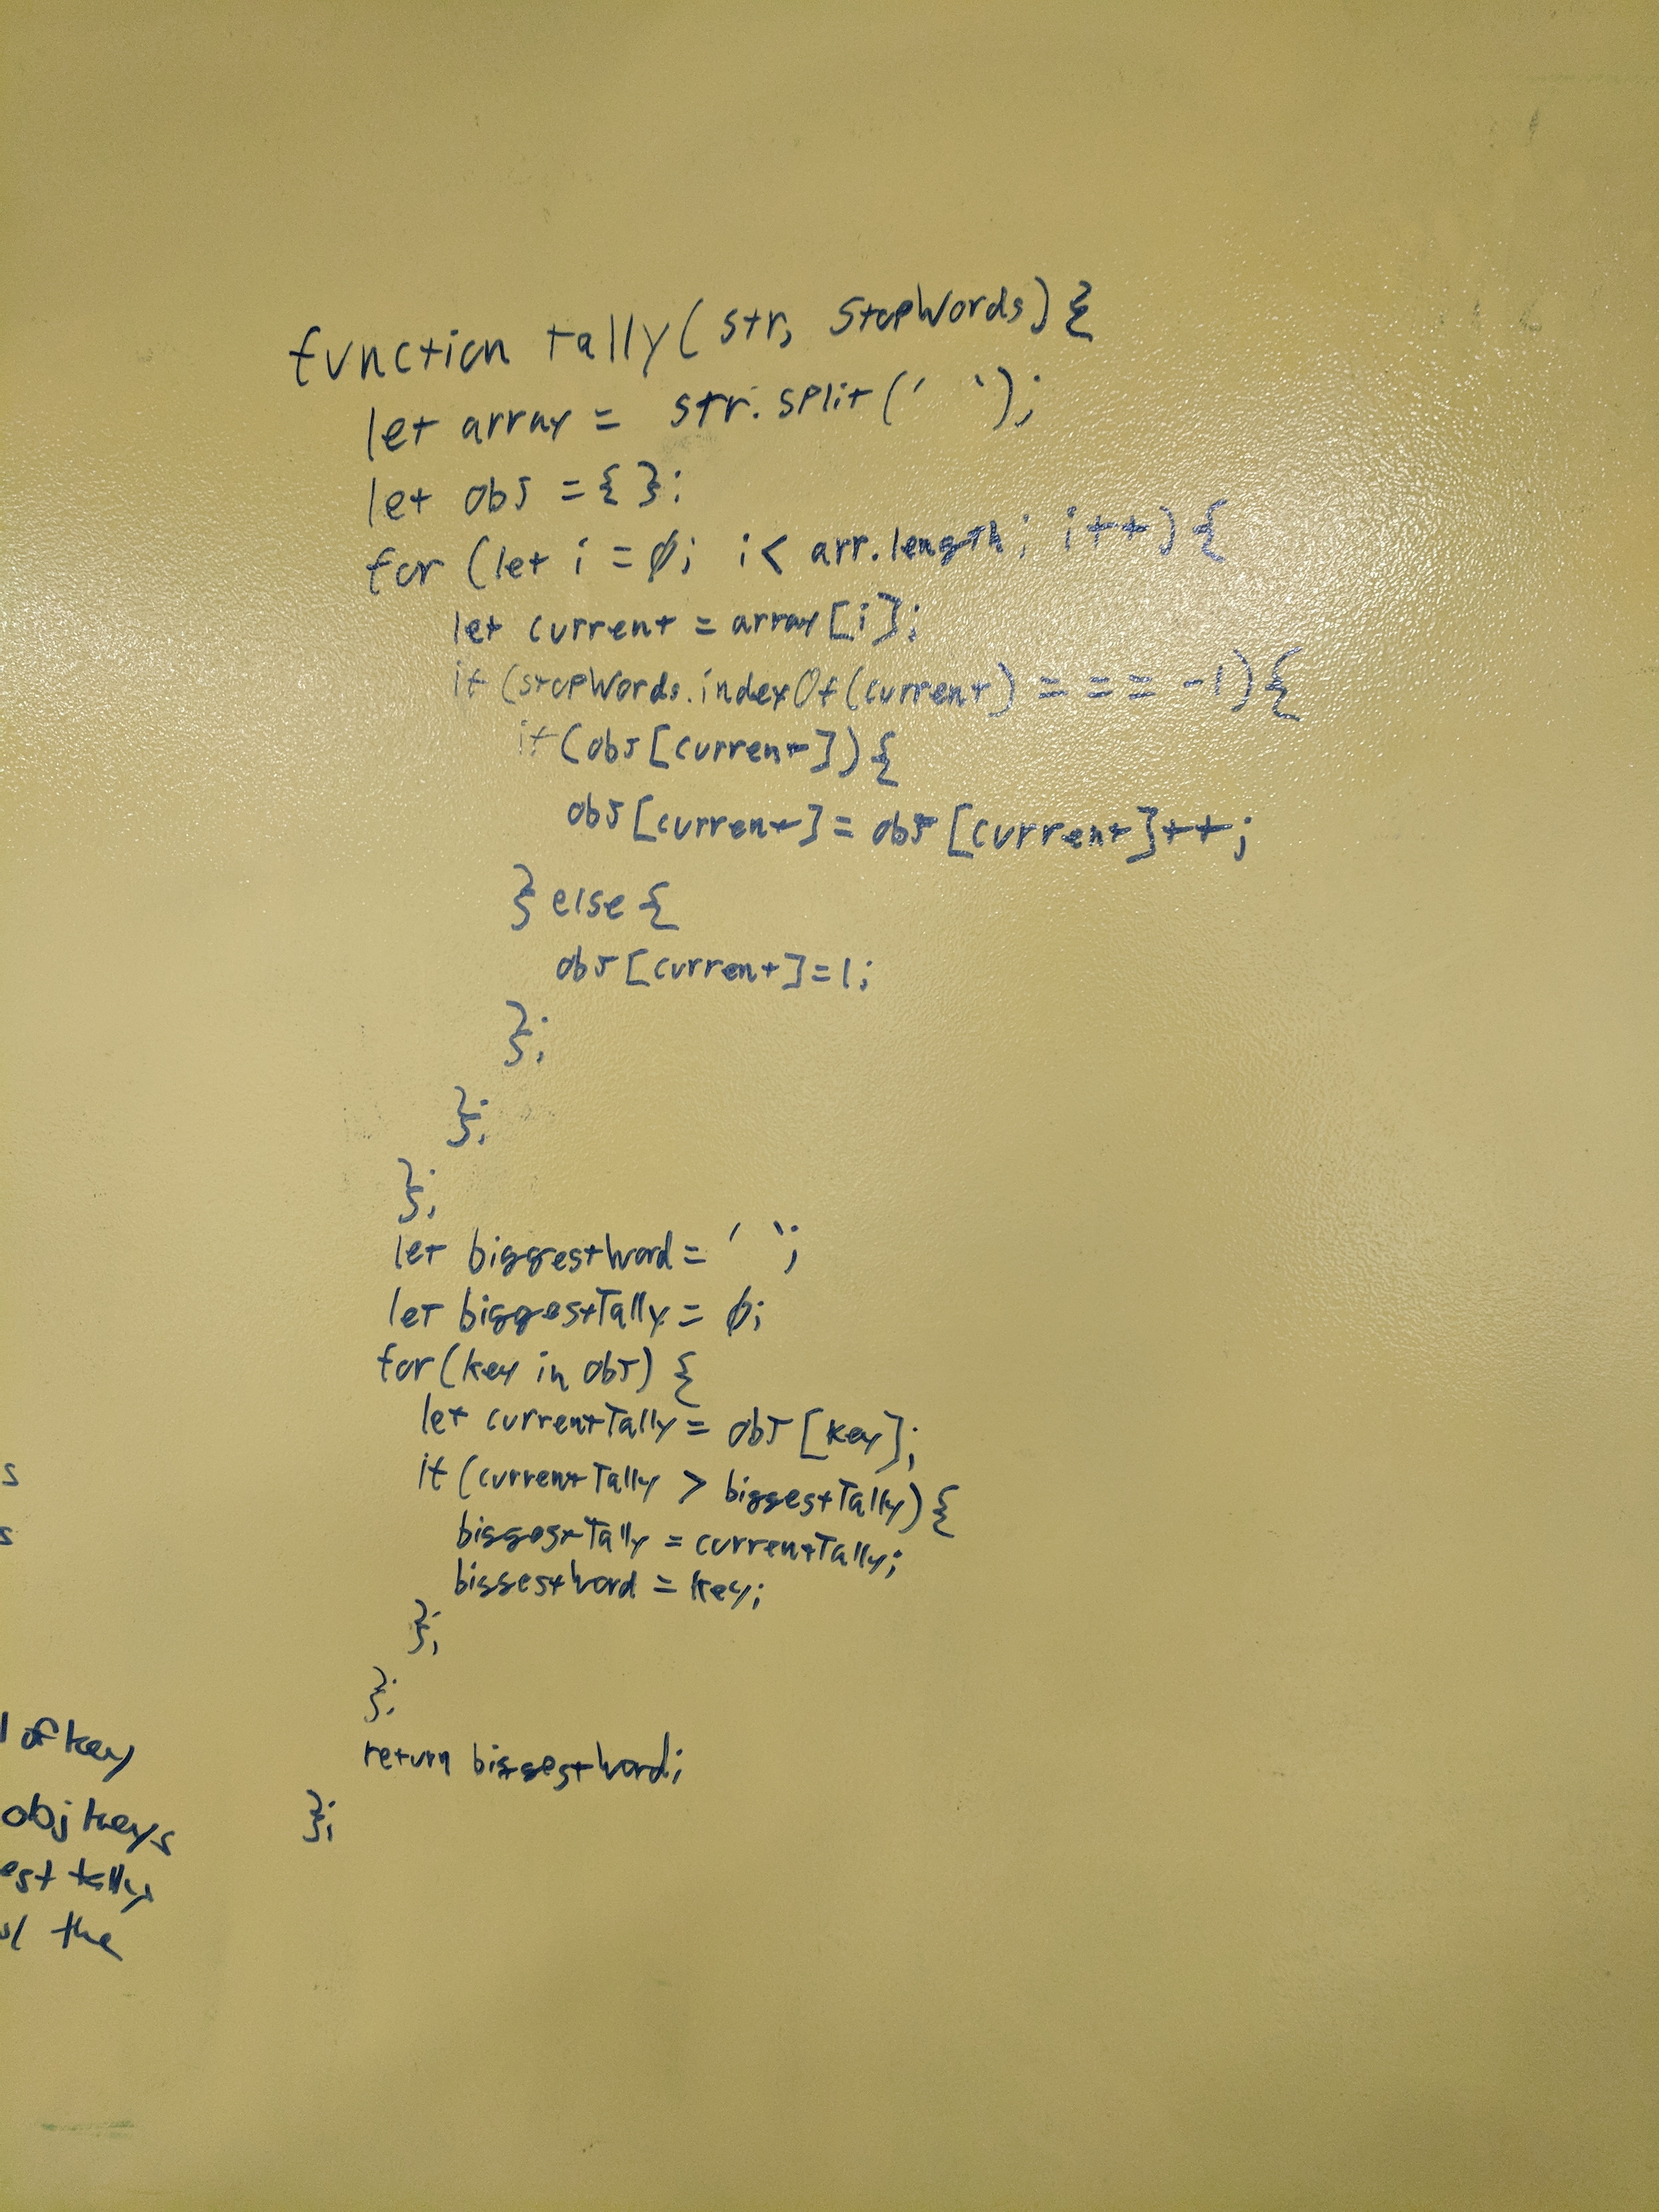 function tally(str, stopWords){
let array = str.split(' ');
let obj = {};
for (let i = 0; i < arr.length; i++){
let current = array[i];
if (stopWords.indexOf(current) === -1){
if (obj[current]){
obj[current] = obj[current]++;
} else {
obj[current]=1;
};
};
};
let biggestWord = ' ';
let biggestTally = 0;
for(key in obj) {
let currentTally = obj[key];
s
if (currentTally > biggestTally){
s
biggestTally = currentTally;
biggestWord = key;
};
};
of key
return biggestWord;
obj keys
};
est tally
the